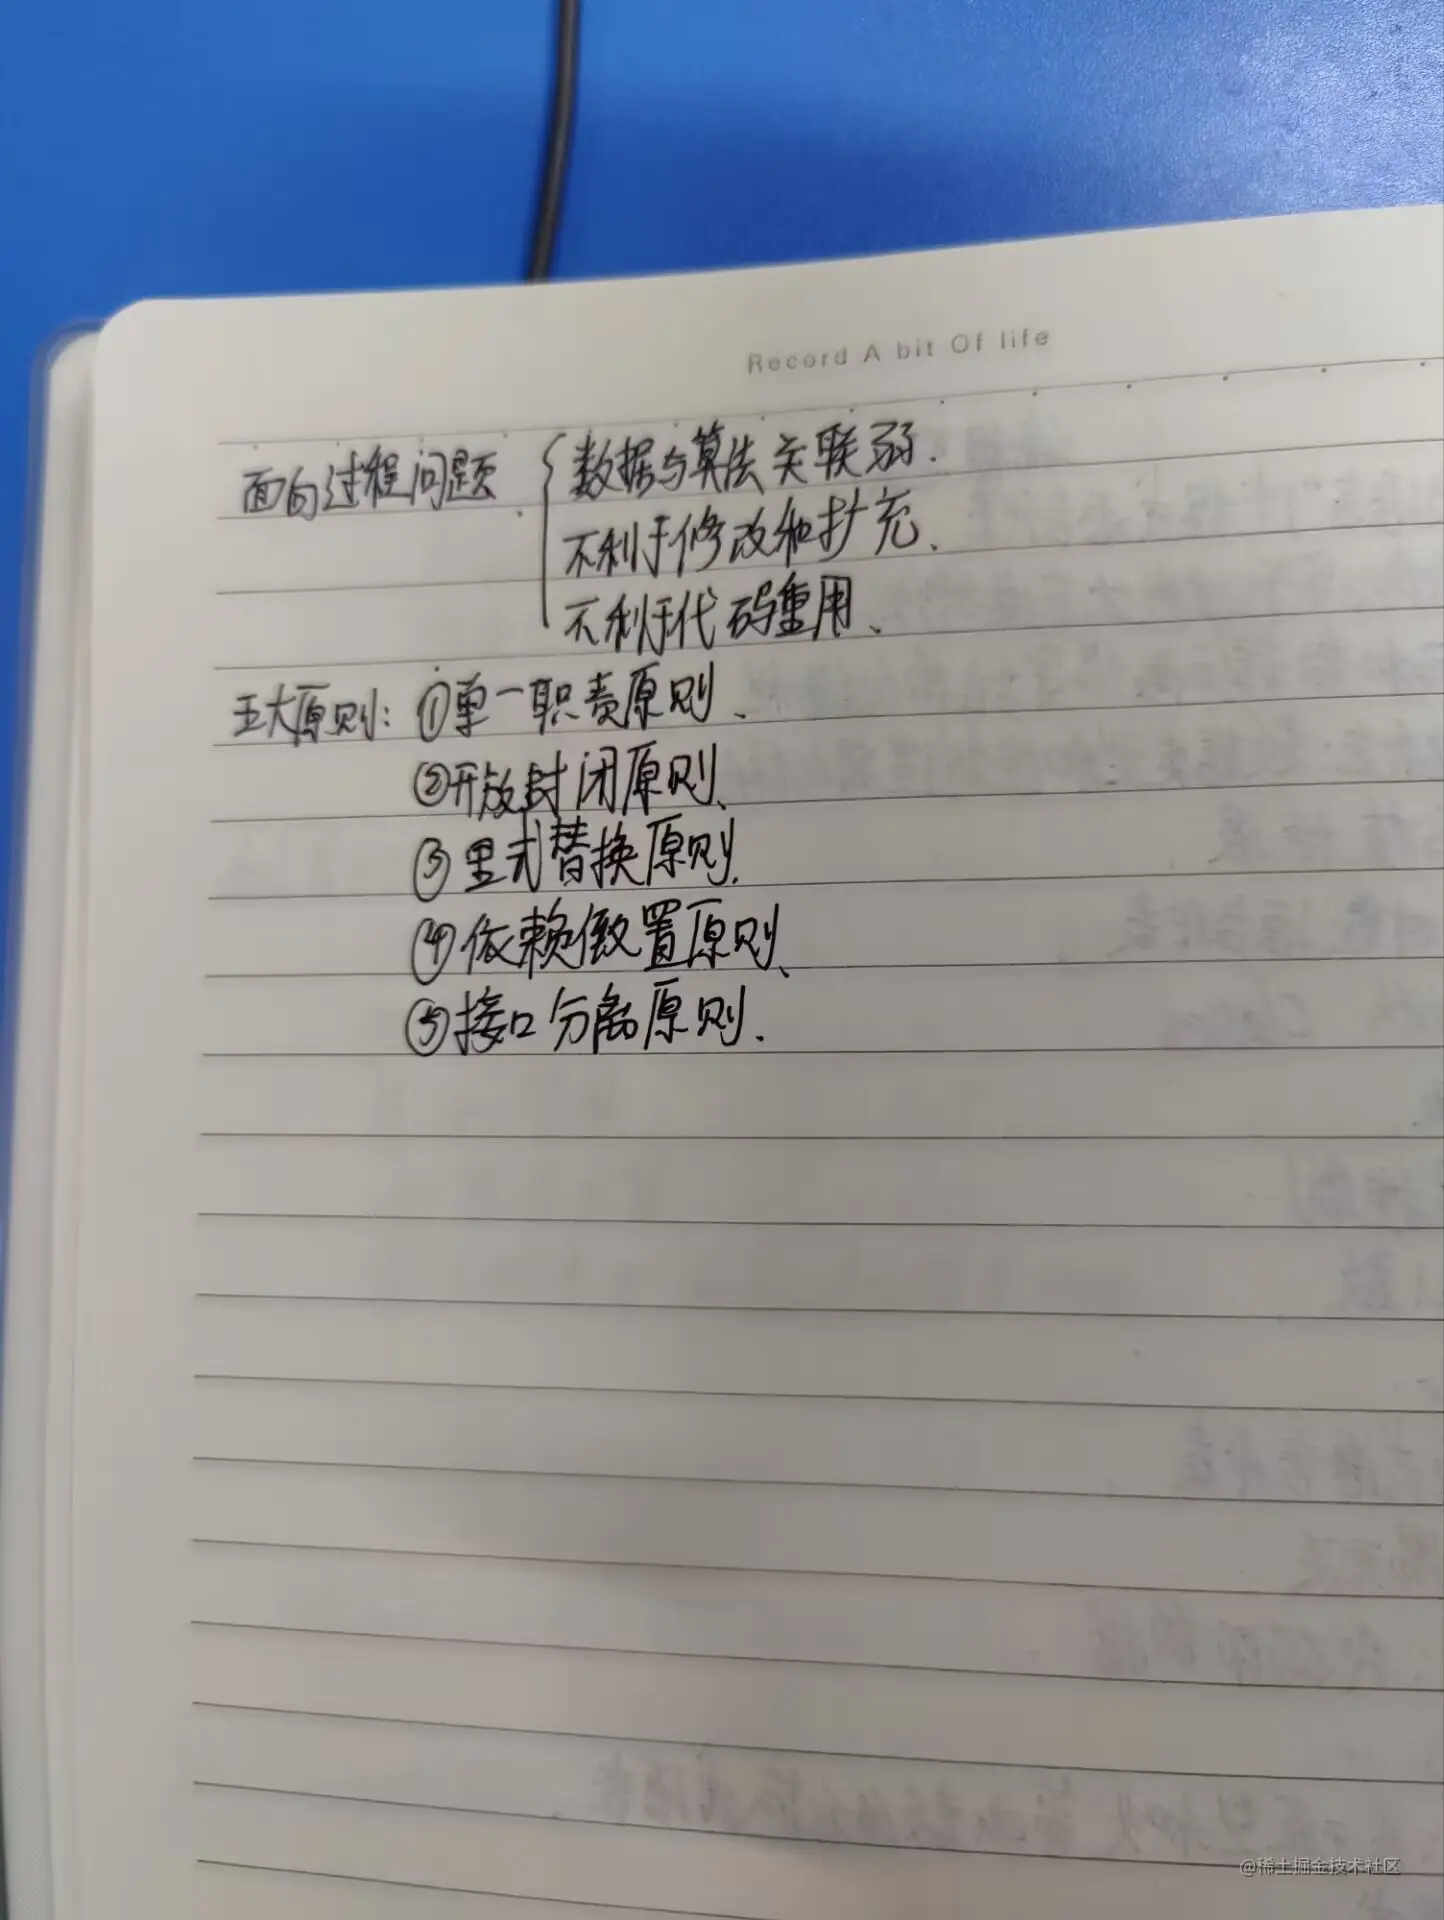 Record A bit Of life
面向过程问题 { 数据与算法关联弱.
不利于修改和扩充、
不利于代码重用、
五大原则: ①单一职责原则、
②开放封闭原则、
③里式替换原则.
④依赖倒置原则、
⑤接口分离原则.
@稀土掘金技术社区